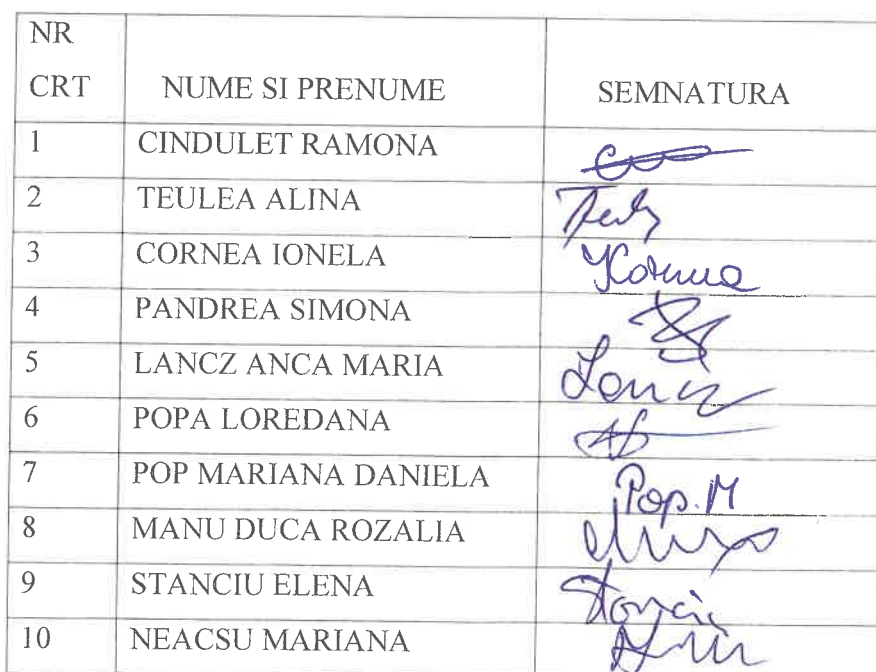 NR
CRT NUME SI PRENUME SEMNATURA
1 CINDULET RAMONA
2 TEULEA ALINA
3 CORNEA IONELA
4 PANDREA SIMONA
5 LANCZ ANCA MARIA
6 POPA LOREDANA
7 POP MARIANA DANIELA Pop. M
8 MANU DUCA ROZALIA
9 STANCIU ELENA
10 NEACSU MARIANA